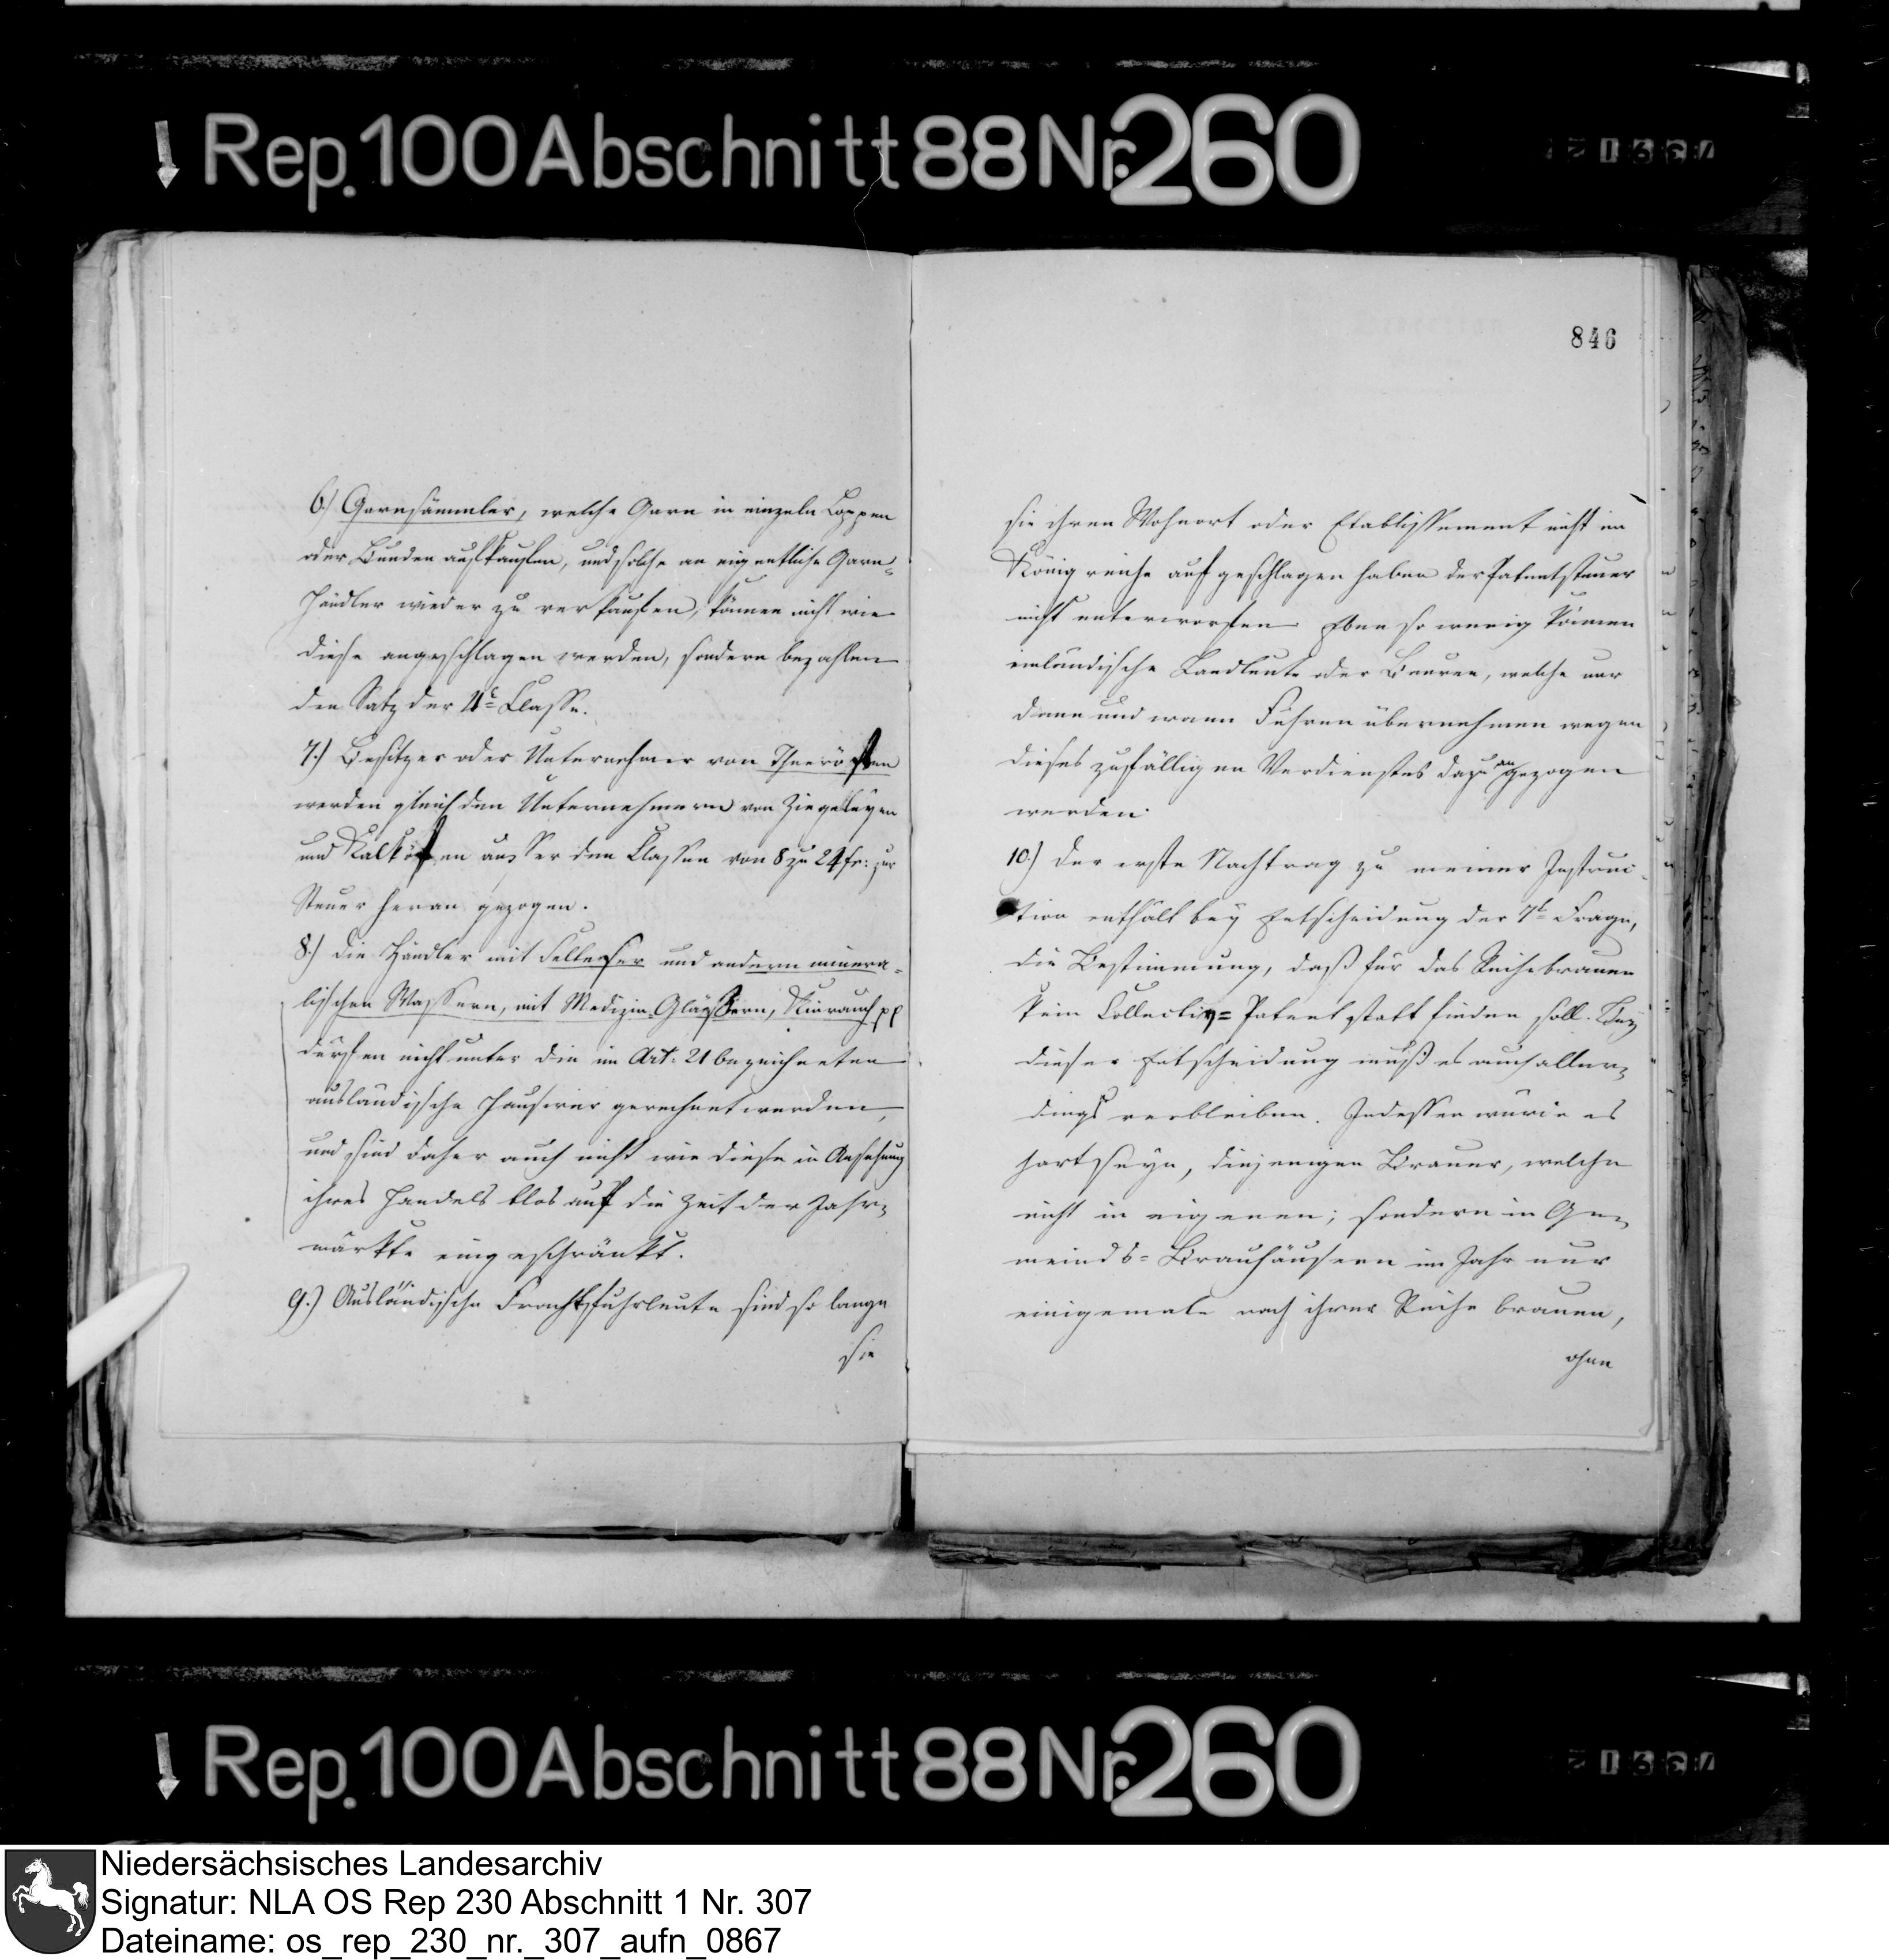 Rep. 100 Abschnitt 88 Nr. 260
846
6.) Garnsämmler, welche Garn in einzeln Loppen
oder Bunden aufkaufen, und solche an eigentliche Garn-
händler wieder zu verkaufen, können nicht wie
diese angeschlagen werden, sondern bezahlen
den Satz der 4e Classe.
7.) Besitzer oder Unternehmer von Theeröfen
werden gleich den Unternehmern von Ziegeleyen
und Kalköfen ausser den Classen von 8 zu 24 fr: zur
Steuer heran gezogen.
8.) Die Händler mit Selterser und andern minera-
lischen Wassern, mit Medizin-Gläsern, Kienrauch pp
dürfen nicht unter die im Art: 21 bezeichneten
ausländische Hausirer gerechnet werden,
und sind daher auch nicht wie diese in Ansehung
ihres Handels blos auf die Zeit der Jahr-
märkte eingeschränkt.
9.) Ausländische Frachtfuhrleute sind so lange
sie
sie ihren Wohnort oder Etablissement nicht im
Königreiche aufgeschlagen haben der Patentsteuer
nicht unterworfen. Eben so wenig können
inländische Landleute oder Bauren, welche nur
dann und wann Fuhren übernehmen wegen
dieses zufälligen Verdienstes dazu angezogen
werden.
10.) Der erste Nachtrag zu meiner Instruc-
tion enthält bey Entscheidung der 7t Frage,
die Bestimmung, daß für das Reihebrauen
kein Collectiv=Patent statt finden soll. Bey
dieser Entscheidung muß es auch aller-
dings verbleiben. Indessen würde es
hart seyn, diejenigen Brauer, welche
nicht in eigenen; sondern in Ge-
meinds=Brauhäusern im Jahr nur
einigemale nach ihrer Reihe brauen,
ohne
Rep. 100 Abschnitt 88 Nr. 260
Niedersächsisches Landesarchiv
Signatur: NLA OS Rep 230 Abschnitt 1 Nr. 307
Dateiname: os_rep_230_nr._307_aufn_0867